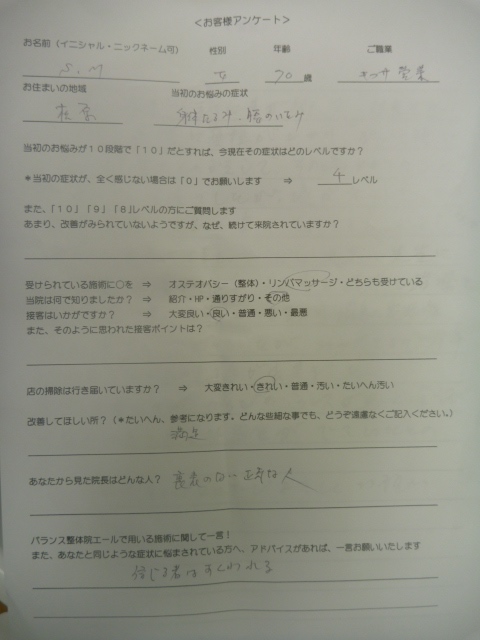 <お客様アンケート>
お名前（イニシャル・ニックネーム可） 性別 年齢 ご職業
S.M 女 70 歳 営業
お住まいの地域 当初のお悩みの症状
当初のお悩みが１０段階で「１０」だとすれば、今現在その症状はどのレベルですか？
＊当初の症状が、全く感じない場合は「０」でお願いします ⇒ 4 レベル
また、「１０」「９」「８」レベルの方にご質問します
あまり、改善がみられていないようですが、なぜ、続けて来院されていますか？
受けられている施術に○を ⇒ オステオパシー（整体）・リンパマッサージ・どちらも受けている
当院は何で知りましたか？ ⇒ 紹介・HP・通りすがり・その他
接客はいかがですか？ ⇒ 大変良い・良い・普通・悪い・最悪
また、そのように思われた接客ポイントは？
店の掃除は行き届いていますか？ ⇒ 大変きれい・きれい・普通・汚い・たいへん汚い
改善してほしい所？（＊たいへん、参考になります。どんな些細な事でも、どうぞ遠慮なくご記入ください。）
満足
あなたから見た院長はどんな人？ 裏表のない正直な人
バランス整体院エールで用いる施術に関して一言！
また、あなたと同じような症状に悩まされている方へ、アドバイスがあれば、一言お願いいたします
信じる者はすくわれる